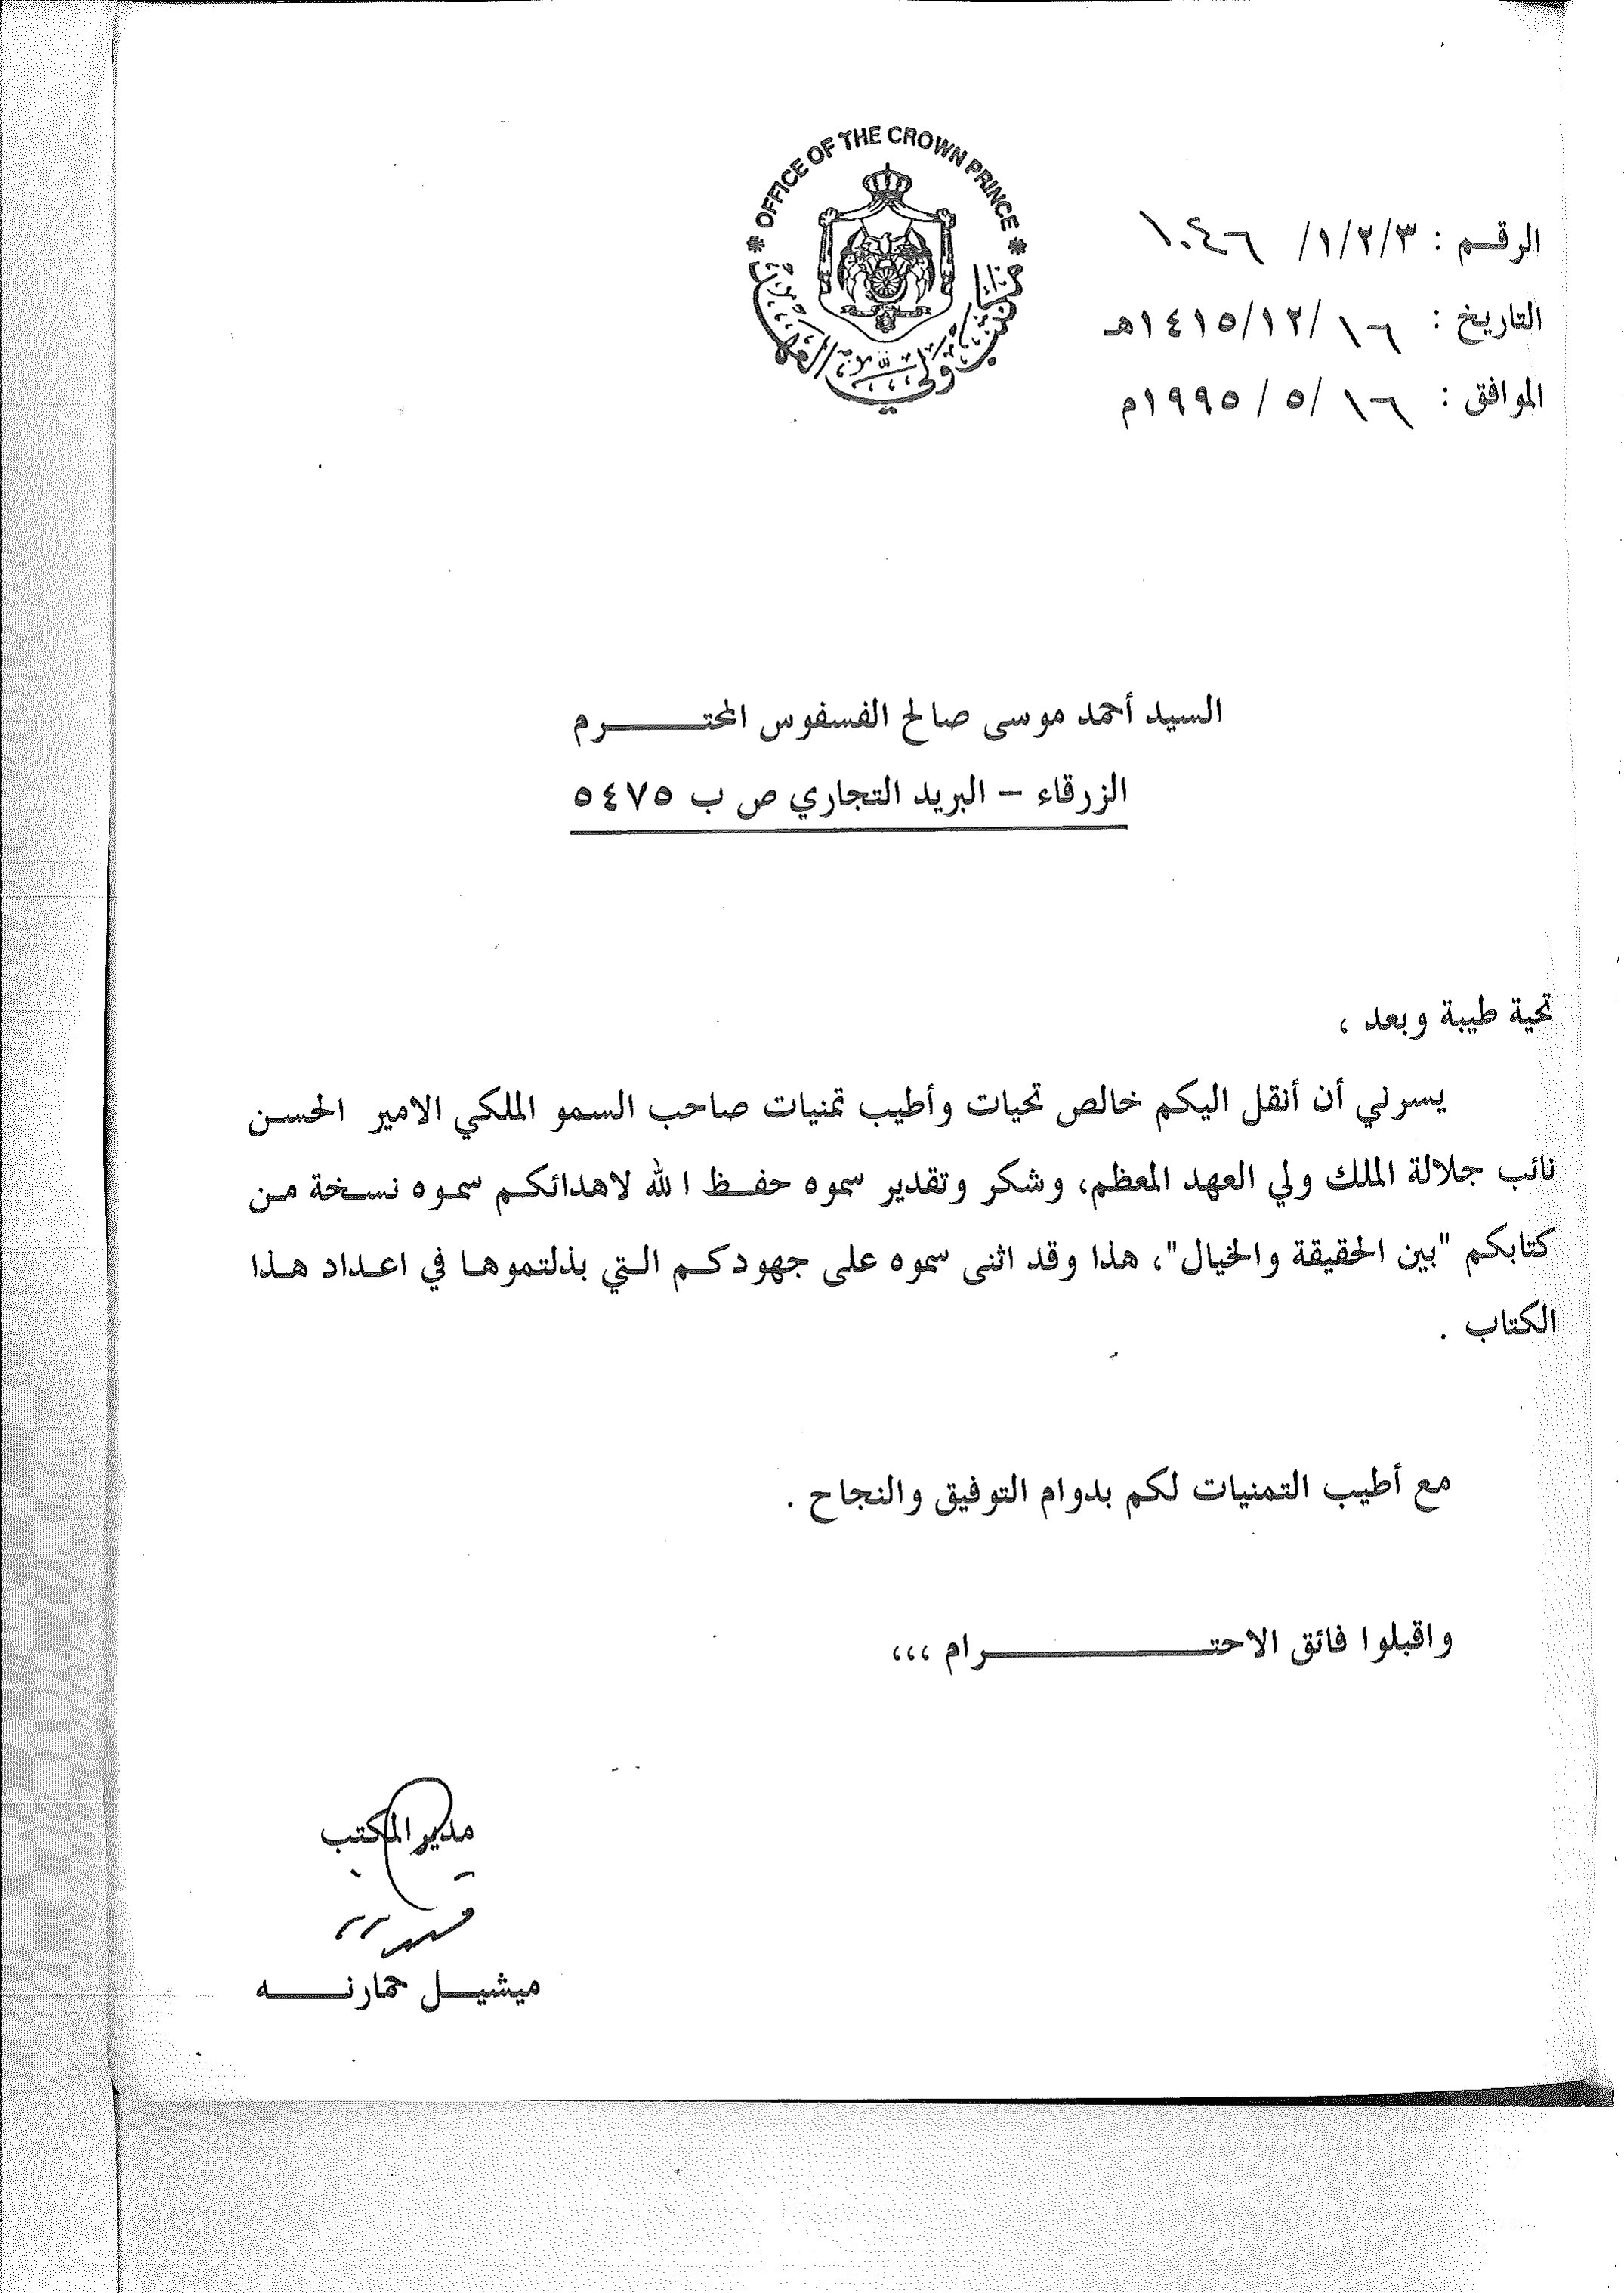 OFFICE OF THE CROWN PRINCE
مكتب ولي العهد
الرقم : ١/٢/٣/ ١٠٤٦
التاريخ : ١٤١٥/١٢/١٦هـ
الموافق : ١٩٩٥/٥/١٦م
السيد أحمد موسى صالح الفسفوس المحتــــــرم
الزرقاء – البريد التجاري ص ب ٥٤٧٥
تحية طيبة وبعد ،
يسرني أن أنقل اليكم خالص تحيات وأطيب تمنيات صاحب السمو الملكي الامير الحسن
نائب جلالة الملك ولي العهد المعظم، وشكر وتقدير سموه حفـظ الله لاهدائكـم سمـوه نسـخة مـن
كتابكم "بين الحقيقة والخيال"، هذا وقد اثنى سموه على جهودكـم الـتي بذلتموهـا في اعـداد هـذا
الكتاب .
مع أطيب التمنيات لكم بدوام التوفيق والنجاح .
واقبلوا فائق الاحتــــــــــــرام ،،،
مدير المكتب
ميشيــل حمارنــــه